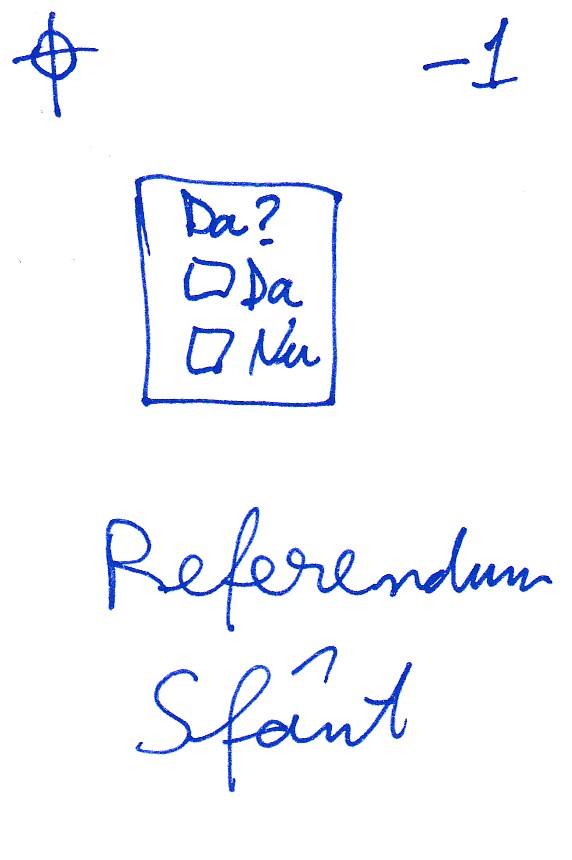 -1
Da?
Da
Nu
Referendum
Sfânt